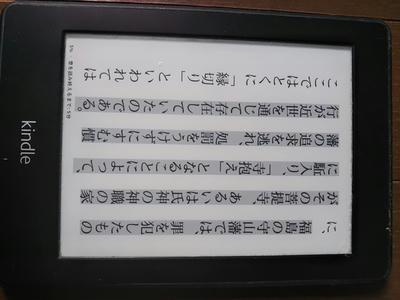 に、福島の守山藩では、罪を犯したもの
がその菩提寺、あるいは氏神の神職の家
に駈入り、「寺抱え」となることによって、
藩の追求を逃れ、処罰をうけずにすむ慣
行が近世を通じて存在していたのである。
ここではとくに「縁切り」といわれては
章を読み終えるまで
kindle